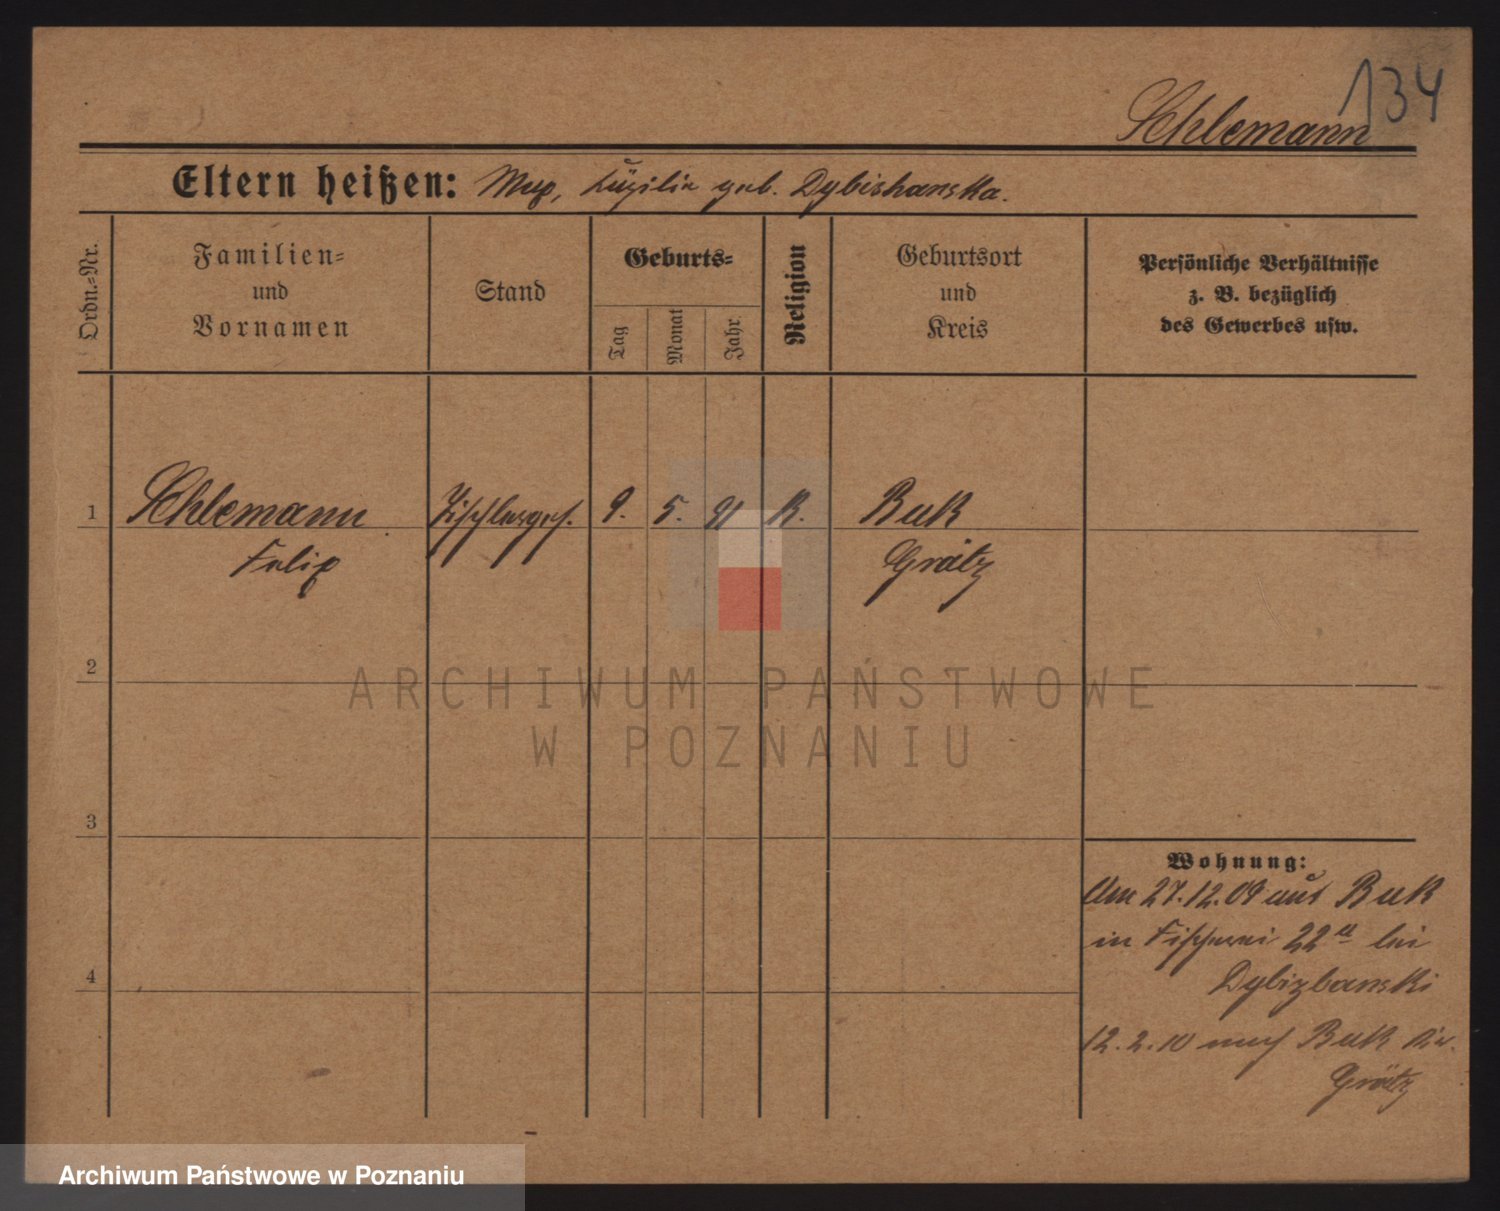 134
Schlemann
Eltern heißen: Max, Cäzilia geb.
Ordn.-Nr.
Familien-
und
Vornamen
Stand
Geburts-
Tag
Monat
Jahr
Religion
Geburtsort
und
Kreis
Persönliche Verhältnisse
z. B. bezüglich
des Gewerbes usw.
1 Schlemann Tischlerges. 9. 5. 91 K. Buk
Felix Grätz
2
3
4
Wohnung:
Am 27.12.09 aus Buk
in Fischerei 22 a bei
Dybizbanski
12.2.10 nach Buk Kr.
Grätz
ARCHIWUM PAŃSTWOWE
W POZNANIU
Archiwum Państwowe w Poznaniu